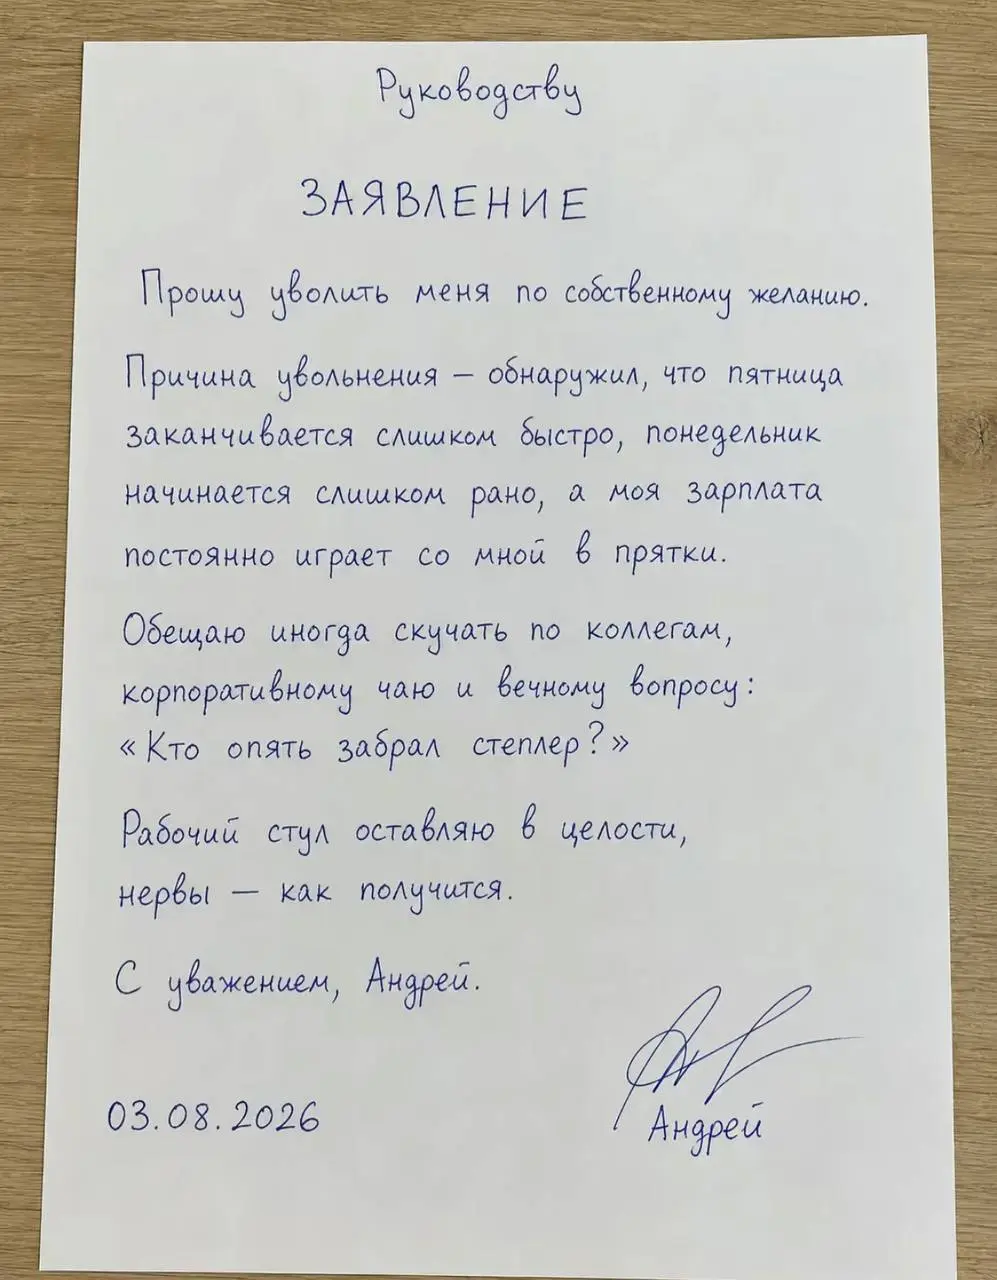 Руководству
ЗАЯВЛЕНИЕ
Прошу уволить меня по собственному желанию.
Причина увольнения – обнаружил, что пятница
заканчивается слишком быстро, понедельник
начинается слишком рано, а моя зарплата
постоянно играет со мной в прятки.
Обещаю иногда скучать по коллегам,
корпоративному чаю и вечному вопросу:
«Кто опять забрал степлер?»
Рабочий стул оставляю в целости,
нервы – как получится.
С уважением, Андрей.
03.08.2026
Андрей